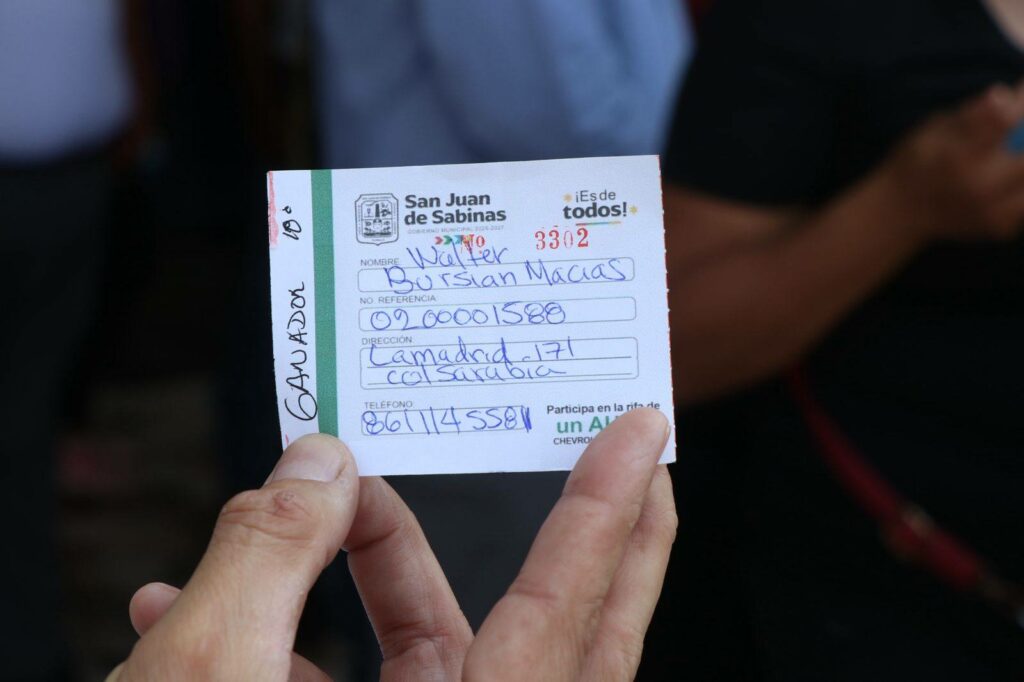 San Juan
de Sabinas
GOBIERNO MUNICIPAL 2025-2027
¡Es de
todos!
No 3302
NOMBRE Walter
Bursian Macias
NO. REFERENCIA
0200001588
DIRECCIÓN
Lamadrid-171
col Sarabia
TELÉFONO
8611145581
Participa en la rifa de
un
GANADOR